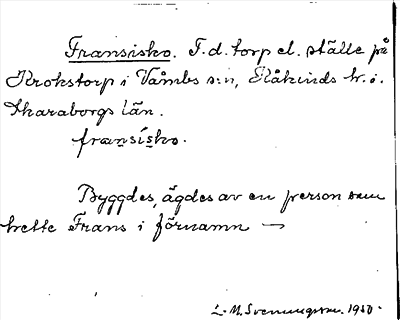 Fransisko. F.d. torp el. ställe på
Krokstorp i Våmbs s:n, Kåkinds hd. i.
Skaraborgs län.
fransísko.
Byggdes, ägdes av en person som
hette Frans i förnamn —
L. M. Svenungsson. 1930.